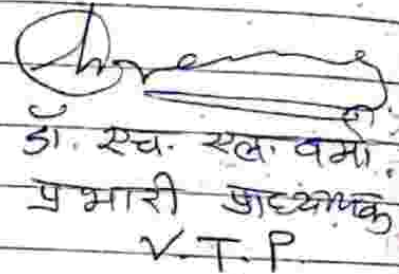 डॉ. एच. एल. वर्मा.
प्रभारी प्राध्यापक
V.T.P.